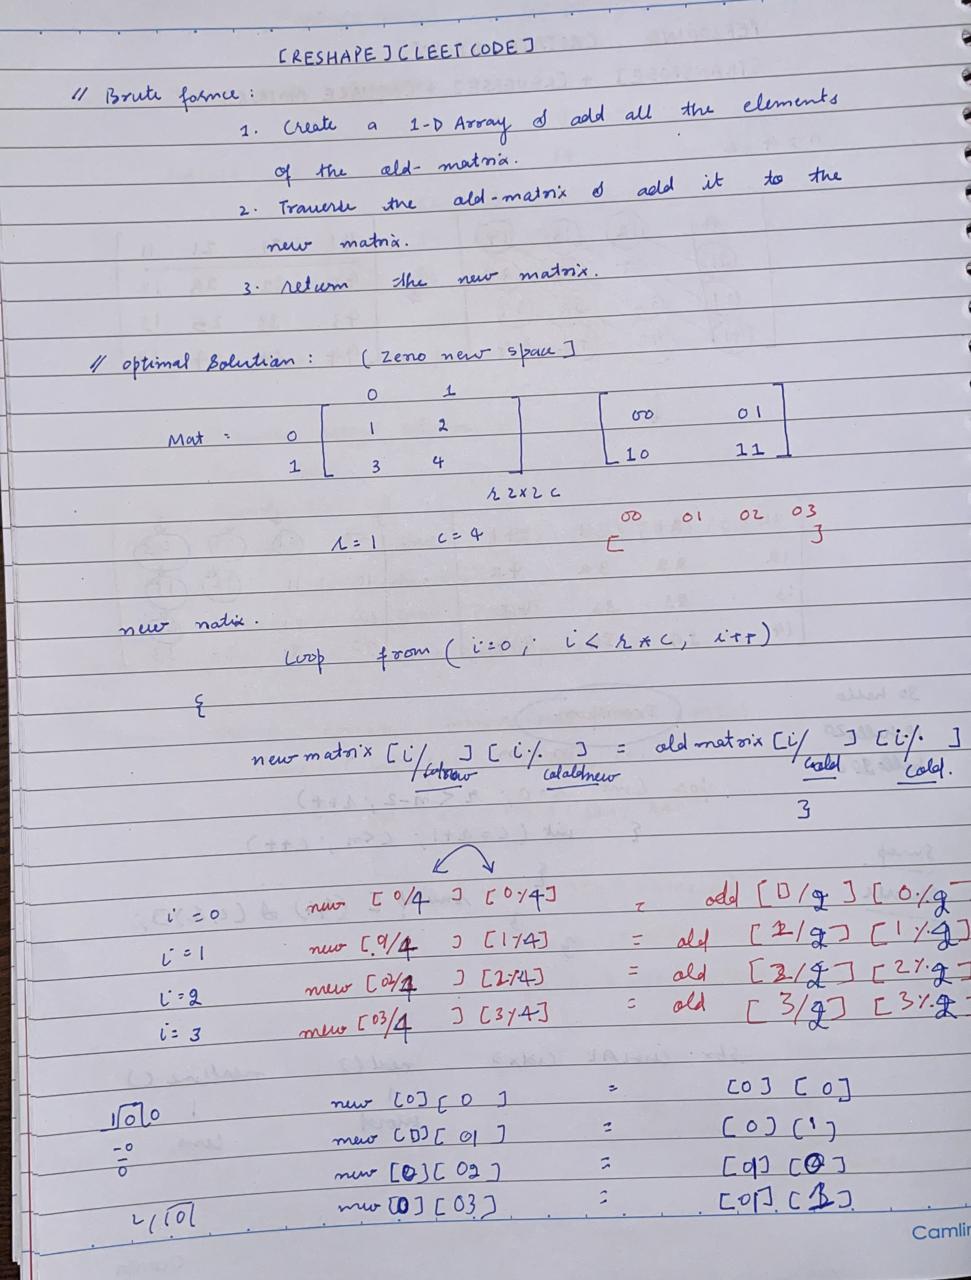 [RESHAPE] [LEET CODE]
// Brute formce :
1. Create a 1-D Array & add all the elements
of the old-matrix.
2. Traverse the old-matrix & add it to the
new matrix.
3. return the new matrix.
// optimal Solution : [Zero new space]
0 1
Mat = 0 1 2 00 01
1 3 4 10 11
r 2x2 c
00 01 02 03
r=1 c=4 [ ]
new natix.
Loop from (i=0; i< r*c; i++)
{
new matrix [i/ ] [i% ] = old matrix [i/ ] [i% ]
colnew cololdnew cold cold.
}
i=0 new [0/4 ] [0%4] = old [0/2] [0%2
i=1 new [0/4 ] [1%4] = old [1/2] [1%2]
i=2 new [02/4 ] [2%4] = old [2/2] [2%2]
i=3 new [03/4 ] [3%4] = old [3/2] [3%2
new [0] [0 ] = [0] [0]
new [0] [01 ] = [0] [1]
new [0] [02 ] = [01] [0]
new [0] [03 ] = [01] [1]
Camlin